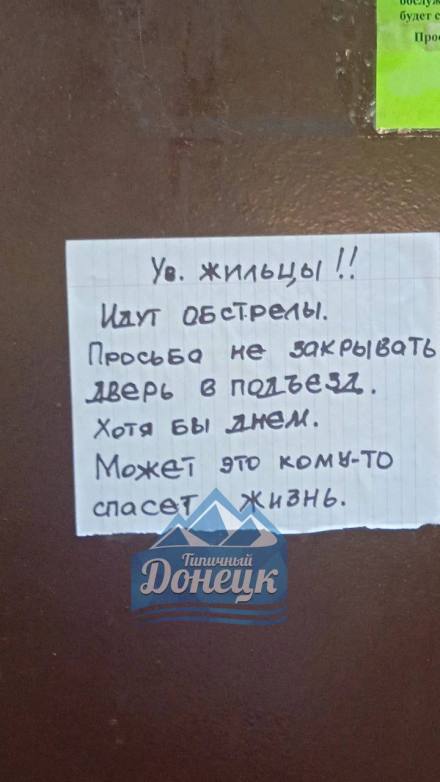 обслуж
будет с
Прос
Ув. жильцы!!
Идут обстрелы.
Просьба не закрывать
дверь в подъезд.
Хотя бы днем.
Может это кому-то
спасет жизнь.
Типичный
Донецк